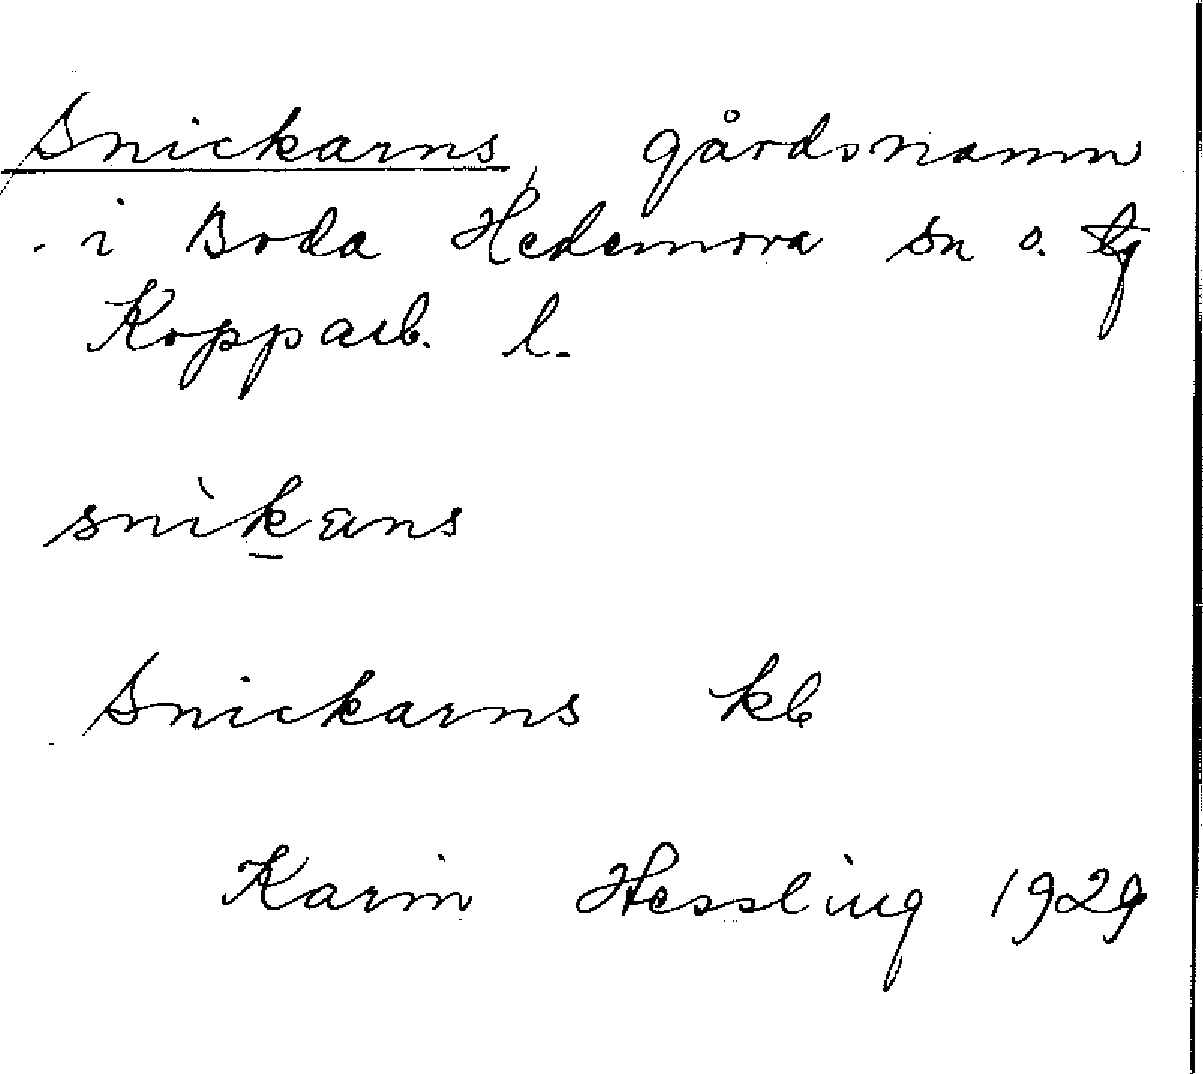 Snickarns, gårdsnamn
i Boda Hedemora sn o. tg
Kopparb. l.
snìk̲ans
Snickarns kb
Karin Hessling 1929